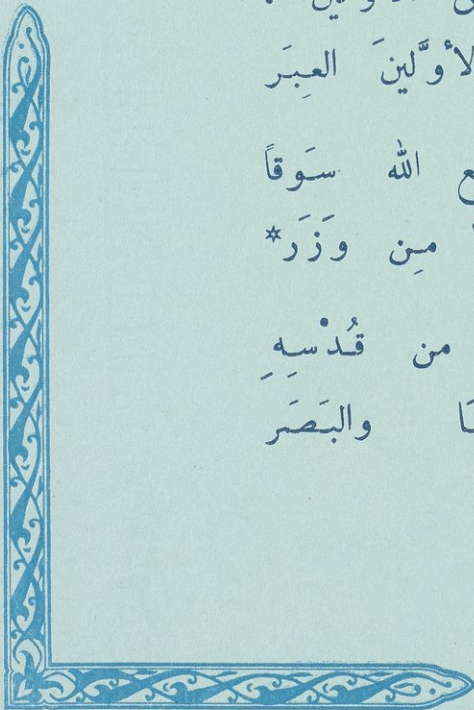 الأوَّلينَ العِبَر
الله سَوقاً
مِن وَزَر*
من قُدْسِهِ
والبَصَر